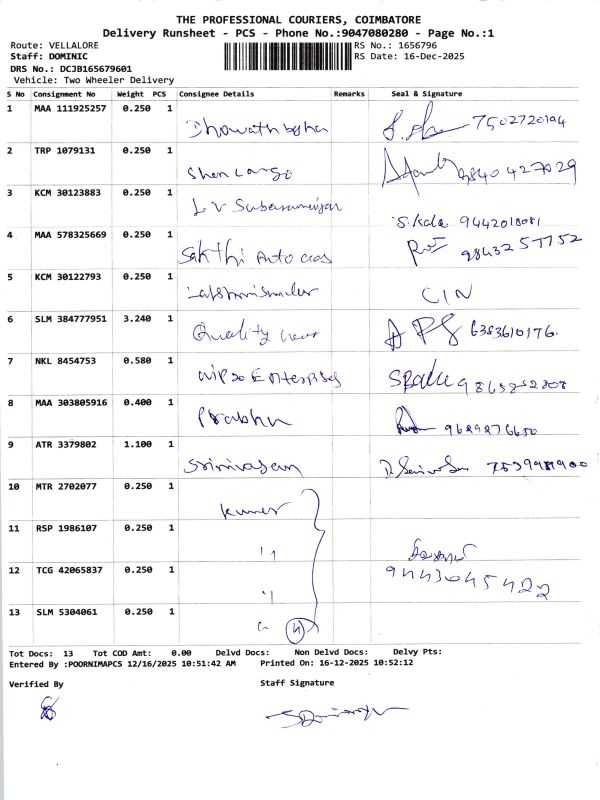 THE PROFESSIONAL COURIERS, COIMBATORE
Delivery Runsheet - PCS - Phone No.:9047080280 - Page No.:1
Route: VELLALORE RS No.: 1656796
Staff: DOMINIC RS Date: 16-Dec-2025
DRS No.: DCJB165679601
Vehicle: Two Wheeler Delivery
S No Consignment No Weight PCS Consignee Details Remarks Seal & Signature
1 MAA 111925257 0.250 1 7502720194
2 TRP 1079131 0.250 1 9840427029
3 KCM 30123883 0.250 1 L V S.Kala 9442018081
4 MAA 578325669 0.250 1 Sakthi Auto 9843257752
5 KCM 30122793 0.250 1 CIN
6 SLM 384777951 3.240 1 Quality 6383610176.
7 NKL 8454753 0.580 1 Enterprises
8 MAA 303805916 0.400 1 Prabhu 9629276650
9 ATR 3379802 1.100 1 Srinivasan 7539981900
10 MTR 2702077 0.250 1 kumar
11 RSP 1986107 0.250 1 "
12 TCG 42065837 0.250 1 " 9443045422
13 SLM 5304061 0.250 1 " 4
Tot Docs: 13 Tot COD Amt: 0.00 Delvd Docs: Non Delvd Docs: Delvy Pts:
Entered By :POORNIMAPCS 12/16/2025 10:51:42 AM Printed On: 16-12-2025 10:52:12
Verified By Staff Signature